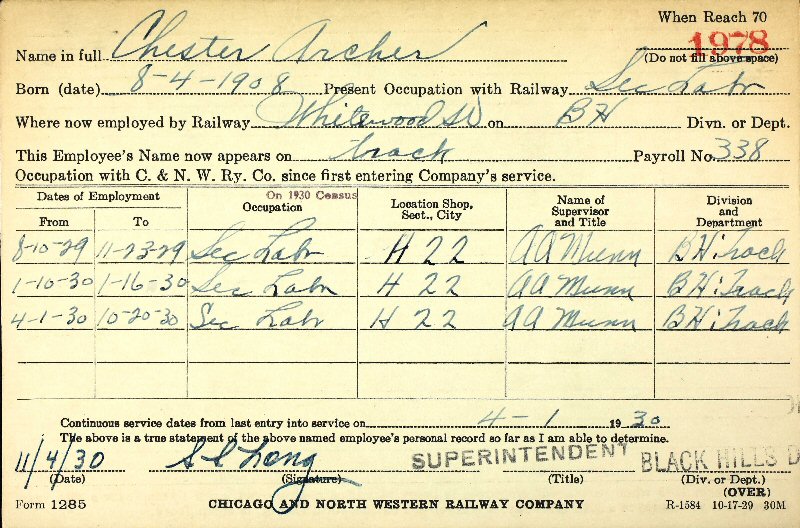 When Reach 70
1978
Name in full Chester Archer
(Do not fill above space)
Born (date) 8-4-1908 Present Occupation with Railway Sec Labr
Where now employed by Railway Whitewood SD on BH Divn. or Dept.
This Employee's Name now appears on track Payroll No. 338
Occupation with C. & N. W. Ry. Co. since first entering Company's service.
Dates of Employment On 1930 Census Occupation Location Shop, Sect., City Name of Supervisor and Title Division and Department
From To
8-10-29 11-23-29 Sec Labr H 22 AA Munn BH: Track
1-10-30 1-16-30 Sec Labr H 22 AA Munn BH: Track
4-1-30 10-20-30 Sec Labr H 22 AA Munn BH: Track
Continuous service dates from last entry into service on 4-1 1930
The above is a true statement of the above named employee's personal record so far as I am able to determine.
11/4/30 S C Long SUPERINTENDENT BLACK HILLS D
(Date) (Signature) (Title) (Div. or Dept.)
(OVER)
Form 1285 CHICAGO AND NORTH WESTERN RAILWAY COMPANY R-1584 10-17-29 30M